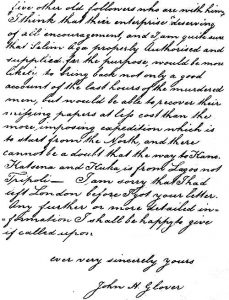 five other old followers who are with him,
I think that their enterprise deserving
of all encouragement, and I am quite sure
that Selim Aga properly Authorised and
supplied for the purpose, would be more
likely to bring back not only a good
account of the last hours of the murdered
men, but would be able to recover their
missing papers at less cost than the
more imposing expedition which is
to start from the North, and there
cannot be a doubt that the way to Kano.
Katsena and Kuka, is from Lagos not
Tripoli — I am sorry that I had
left London before I got your letter.
Any further or more detailed in-
formation I shall be happy to give
if called upon
ever very sincerely yours
John H. Glover